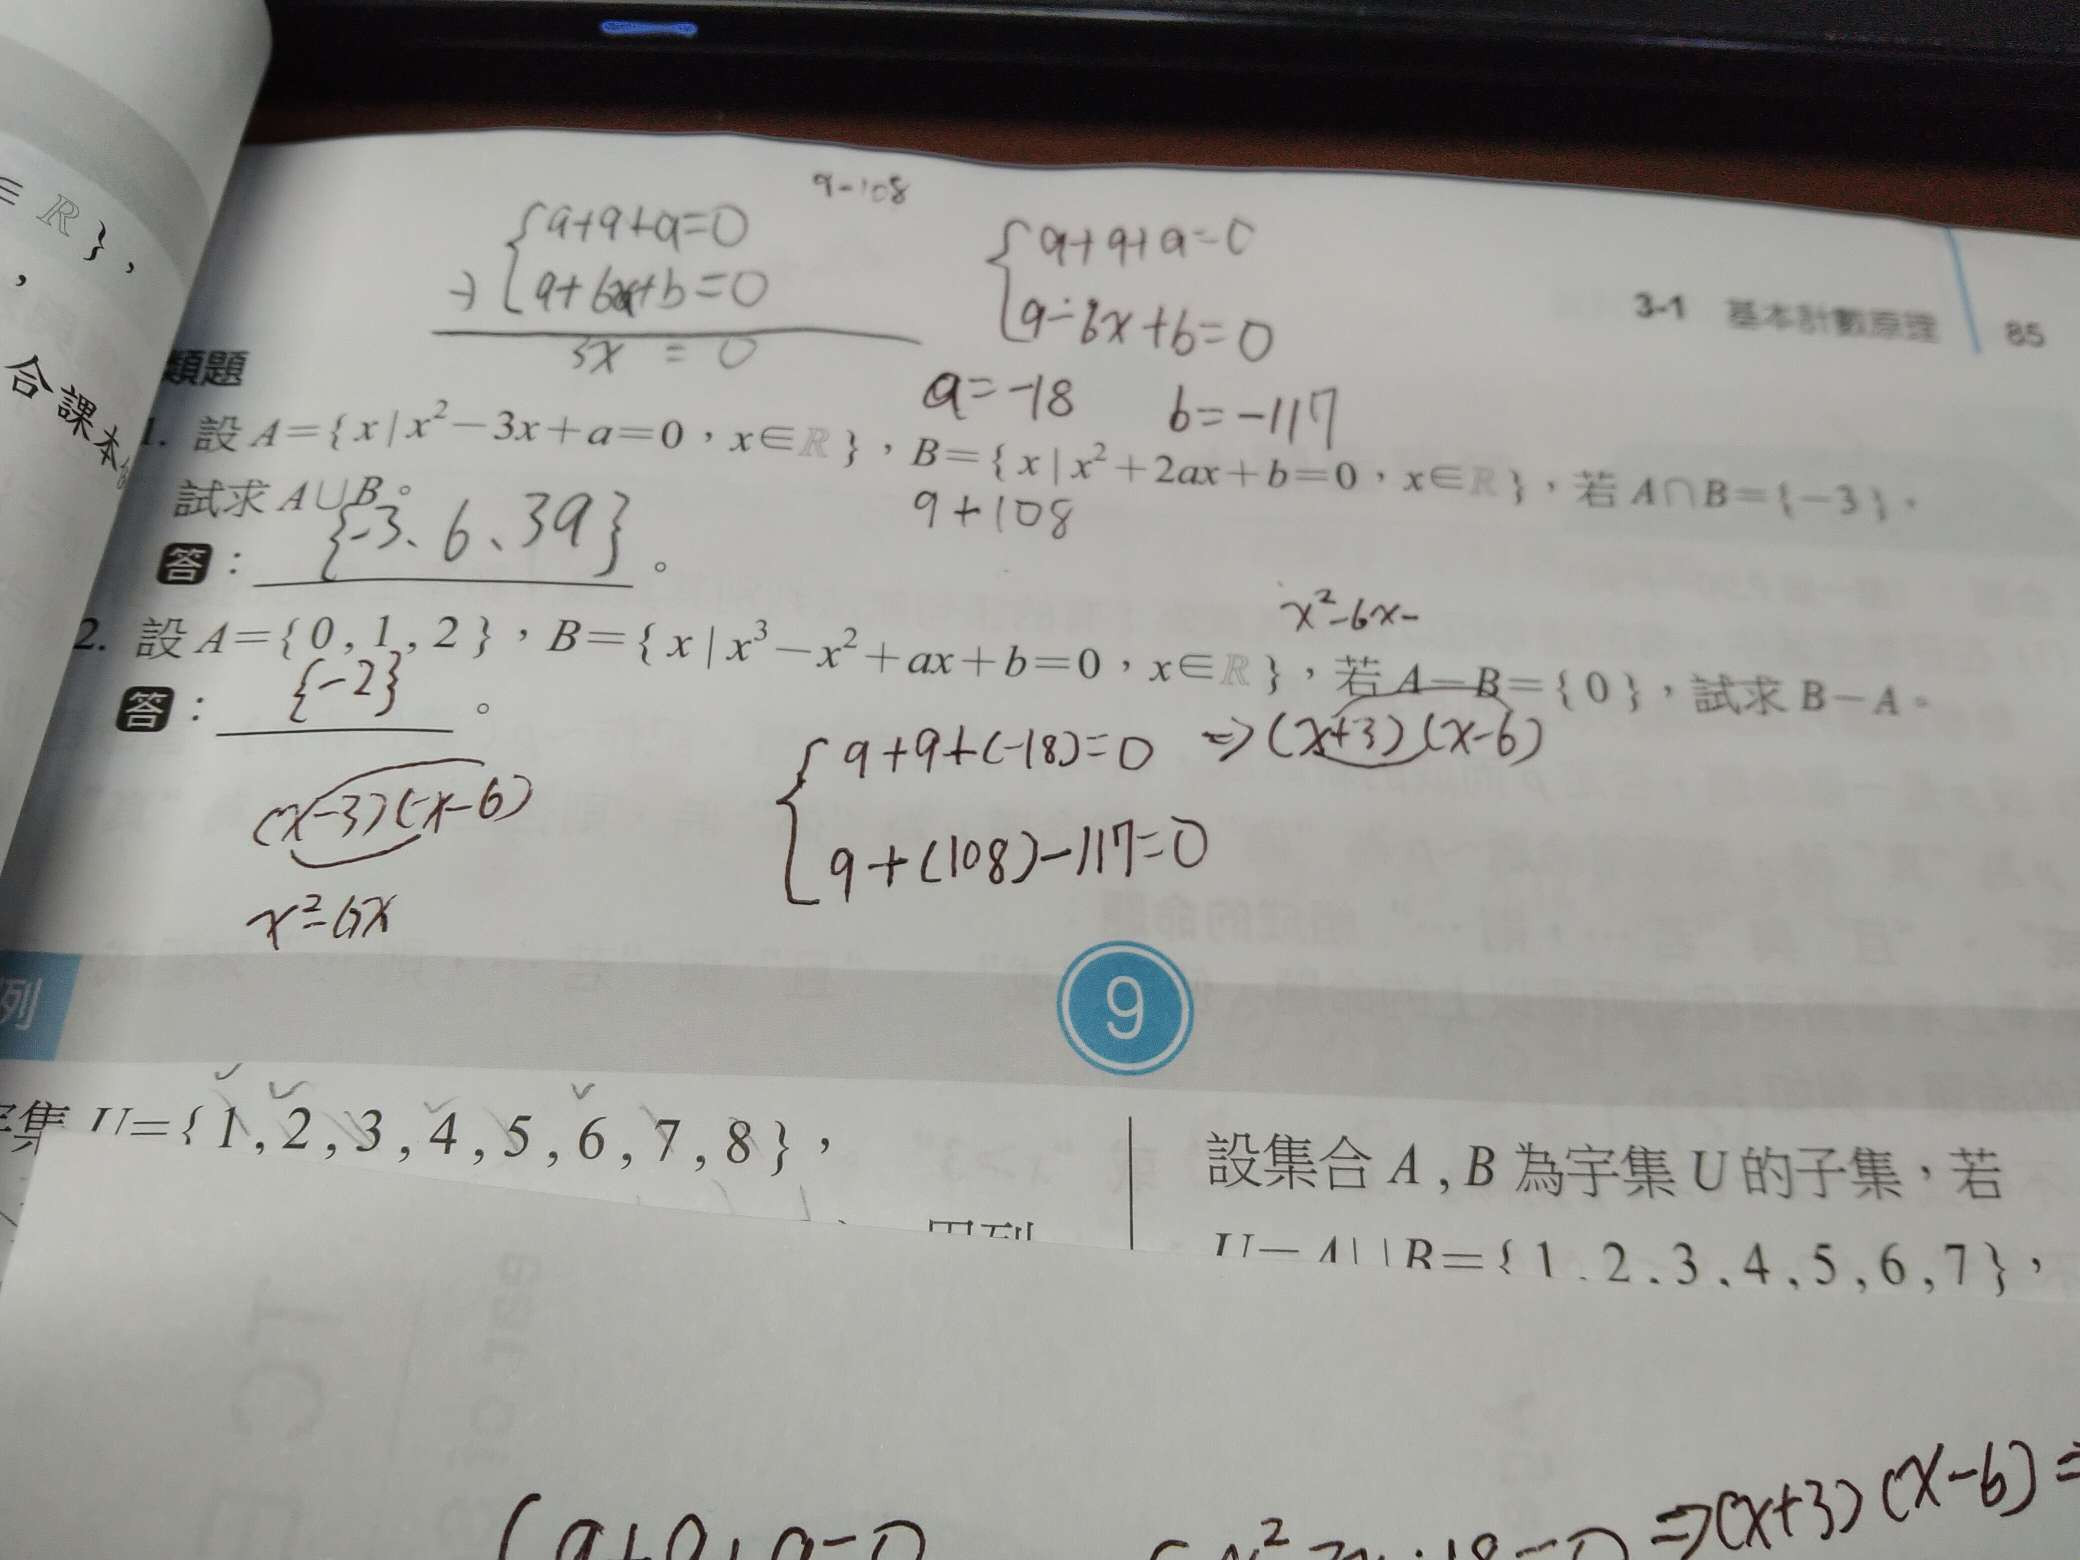 ∈ ℝ },
,
合課本
9-108
{9+9+a=0
→ {9+6x+b=0
3x = 0
{9+9+a=0
{9-6x+b=0
a=-18 b=-117
3-1 基本計數原理 85
類題
1. 設 A={x|x²-3x+a=0,x∈ℝ},B={x|x²+2ax+b=0,x∈ℝ},若 A∩B={-3},
試求 A∪B。
9+108
答: {-3、6、39} 。
x²-6x-
2. 設 A={0,1,2},B={x|x³-x²+ax+b=0,x∈ℝ},若 A-B={0},試求 B-A。
答: {-2} 。
{9+9+(-18)=0 ⇒(x+3)(x-6)
(x-3)(x-6)
{9+(108)-117=0
x²-6x
列
9
宇集 U={1,2,3,4,5,6,7,8},
設集合 A,B 為宇集 U 的子集,若
U=A∪B={1,2,3,4,5,6,7},
9+9+a=0
⇒(x+3)(x-6)=